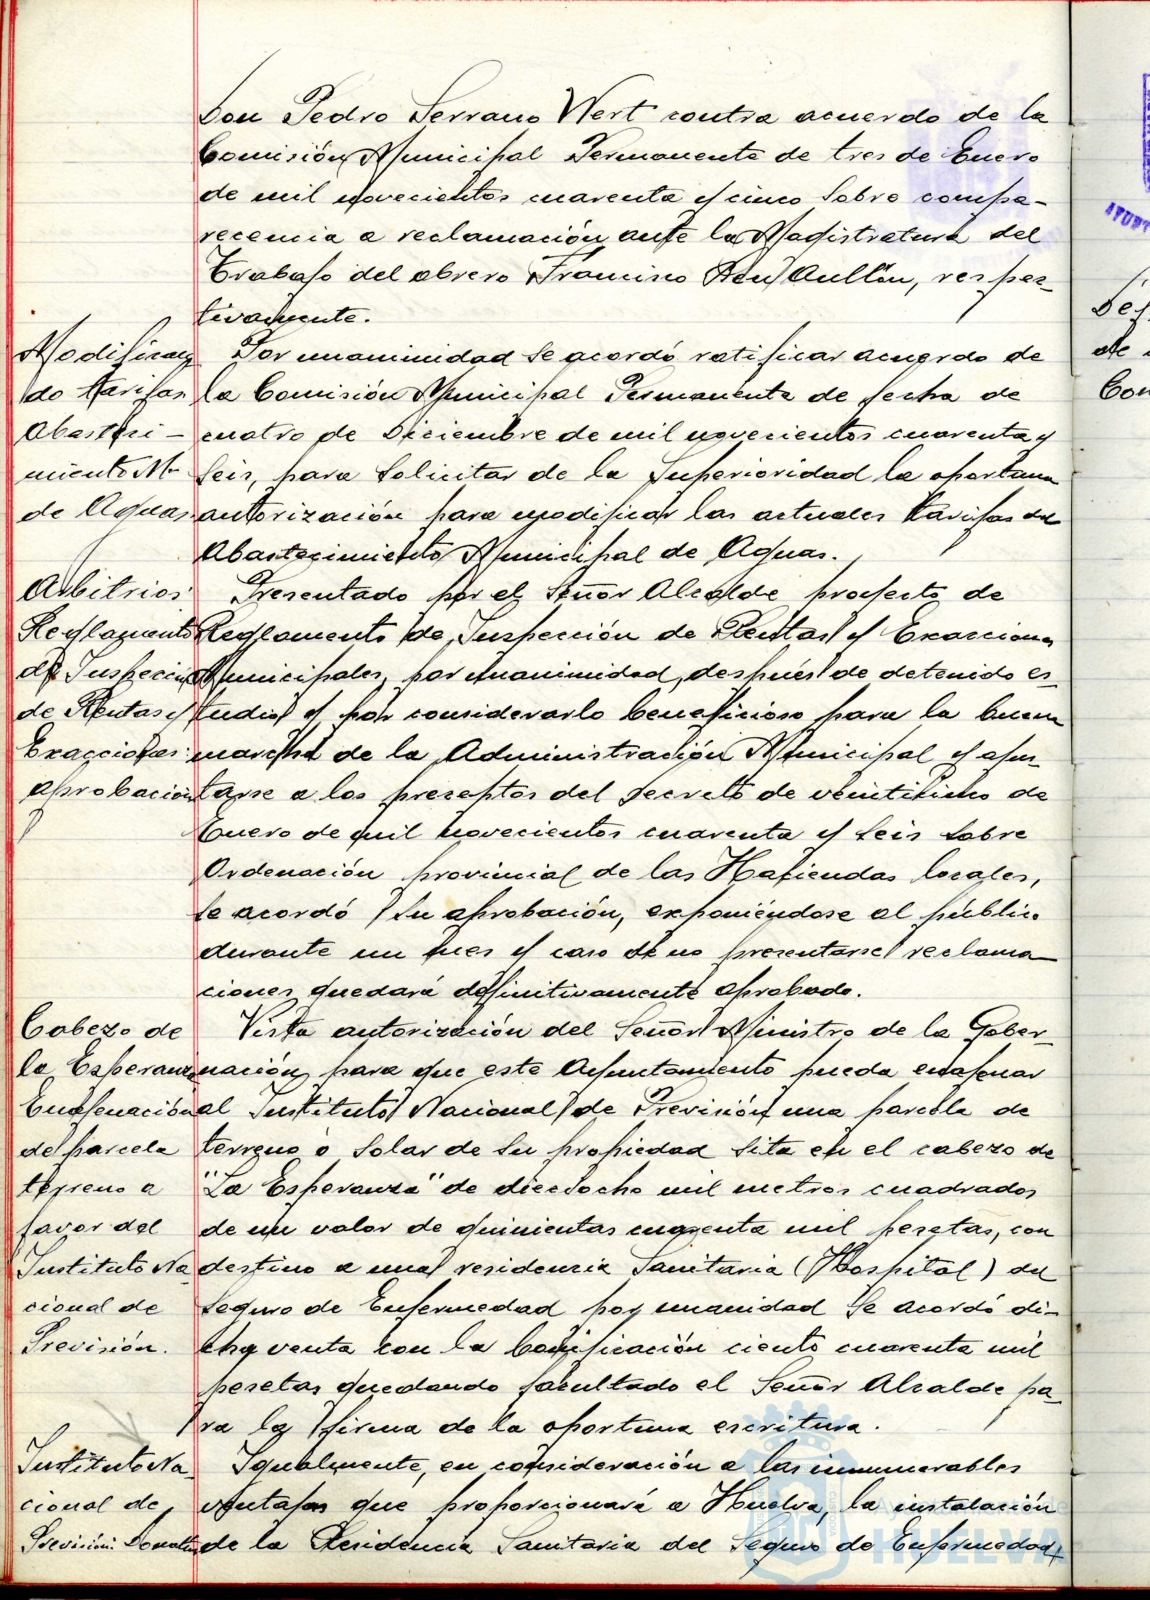 Don Pedro Serrano Wert contra acuerdo de la
Comisión Municipal Permanente de tres de Enero
de mil novecientos cuarenta y cinco sobre compa-
recencia a reclamación ante la Magistratura del
Trabajo del obrero Francisco Aullón, respec-
tivamente.
Modifican
do tarifas
Abasteci-
miento M.
de Aguas
Por unaminidad se acordó ratificar acuerdo de
la Comisión Municipal Permanente de fecha de
cuatro de Diciembre de mil novecientos cuarenta y
seis, para solicitar de la Superioridad la oportuna
autorización para modificar las actuales tarifas del
Abastecimiento Municipal de Aguas.
Arbitrios
Reglamento
de Inspección
de Rentas y
Exacciones
aprobación
Presentado por el Señor Alcalde proyecto de
Reglamento de Inspección de Rentas y Exacciones
Municipales, por unanimidad, después de detenido es-
tudio y por considerarlo beneficioso para la buena
marcha de la Administración Municipal y ajus-
tarse a los preceptos del Decreto de veinticinco de
Enero de mil novecientos cuarenta y seis sobre
Ordenación provincial de las Haciendas locales,
se acordó su aprobación, exponiéndose al público
durante un mes y caso de no presentarse reclama-
ciones quedará definitivamente aprobado.
Cabezo de
la Esperanza
Enajenación
de parcela
terreno a
favor del
Instituto Na
cional de
Previsión.
Vista autorización del Señor Ministro de la Gober-
nación, para que este Ayuntamiento pueda enajenar
al Instituto Nacional de Previsión una parcela de
terreno o solar de su propiedad sita en el cabezo de
"La Esperanza" de dieciocho mil metros cuadrados
de un valor de quinientas cuarenta mil pesetas, con
destino a una residencia Sanitaria (Hospital) del
Seguro de Enfermedad por unanidad se acordó di-
cha venta con la bonificación ciento cuarenta mil
pesetas quedando facultado el Señor Alcalde pa-
ra la firma de la oportuna escritura.
Instituto Na
cional de
Previsión: Donativo
Igualmente, en consideración a las innumerables
ventajas que proporcionará a Huelva, la instalación
de la Residencia Sanitaria del Seguro de Enfermedad,
HUELVA